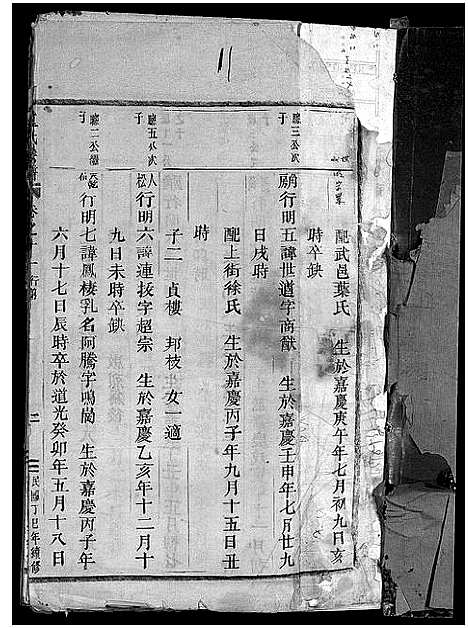 配武邑葉氏 生於嘉慶庚午年七月初九日亥
時卒缺
驄三公次子
願行明五諱世道字商猷 生於嘉慶壬申年七月廿九
日戌時
配上街徐氏 生於嘉慶丙子年九月十五日丑
時
子二 貞樓 邦枝 女一適
驄五公次子
松行明六諱連拔字超宗 生於嘉慶乙亥年十二月十
九日未時卒缺
驄二公繼子
行明七諱鳳棲乳名阿騰字鳴崗 生於嘉慶丙子年
六月十七日辰時卒於道光癸卯年五月十八日
行明
二
民國丁巳年續修